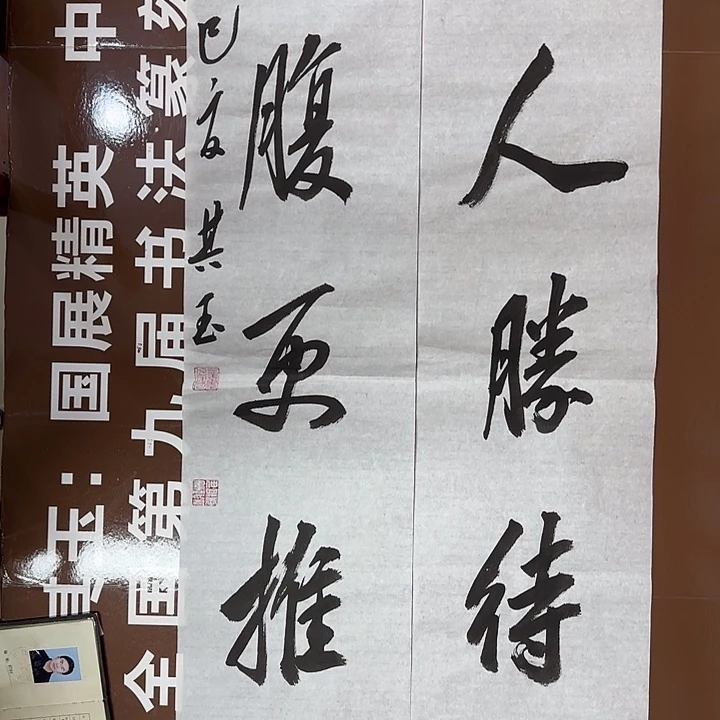 人勝待
腹更推
巳
其玉
其玉：国展精英 中
全国第九届书法篆